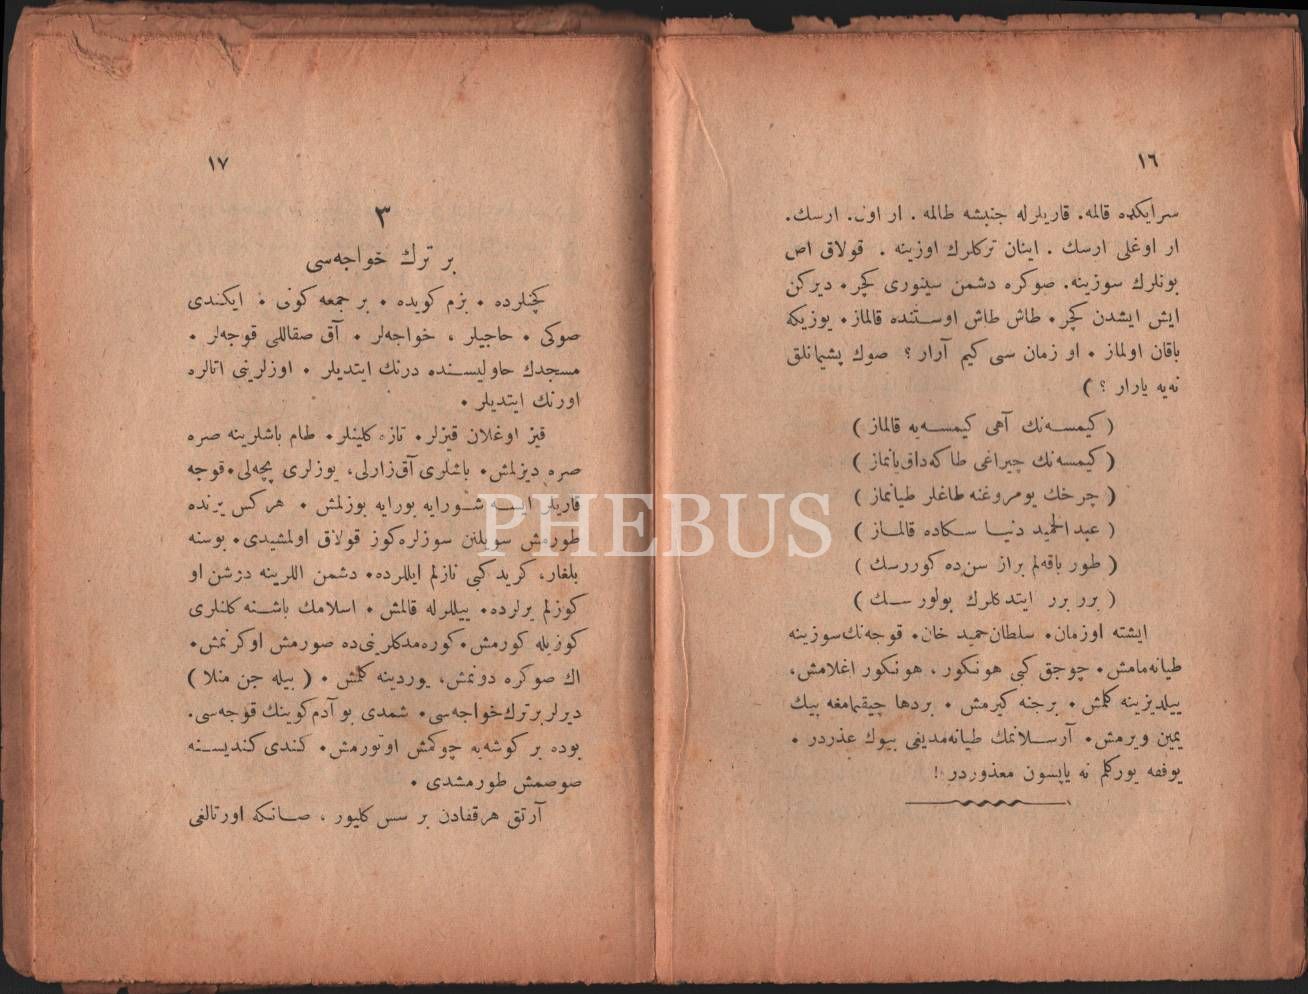 ١٦
سرایكده قالمه. قاریلرله جنبشه طالمه . ار اول. ارسك.
ار اوغلی ارسك . اینان تركلرك اوزینه . قولاق اص
بونلرك سوزینه. صوكره دشمن سینوری كچر. دیركن
ایش ایشدن كچر. طاش طاش اوستنده قالماز. یوزیكه
باقان اولماز. او زمان سی كیم آرار ؟ صوك پشیمانلق
نه‌یه یارار ؟ )
( كیمسه‌نك آهی كیمسه‌یه قالماز )
( كیمسه‌نك چیراغی طاكه‌داق یانماز )
( چرخك یومروغنه طاغلر طیانماز )
( عبدالحمید دنیا سكاده قالماز )
( طور باقه‌لم براز سن‌ده كوررسك )
( برر برر ایتدكلرك بولورسك )
ایشته اوزمان. سلطان حمید خان. قوجه‌نك سوزینه
طیانه‌مامش. چوجق كبی هونكور، هونكور اغلامش،
ییلدیزینه كلمش. برخنه كیرمش. بردها چیقمامغه بیك
یمین ویرمش. آرسلانمك طیانه‌مدیغی بیوك عذردر.
یوفقه یوركلم نه یاپسون معذوردر !
١٧
٣
بر ترك خواجه‌سی
كچنلرده. بزم كویده. بر جمعه كونی. ایكندی
صوكی. حاجیلر ، خواجه‌لر. آق صقاللی قوجه‌لر.
مسجدك حاولیسنده درنك ایتدیلر. اوزلرینی اتالره
اورنك ایتدیلر.
قیز اوغلان قیزلر. تازه كلینلر. طام باشلرینه صره
صره دیزلمش. باشلری آق‌زارلی، یوزلری پچه‌لی. قوجه
قاریلر ایسه شورایه بورایه بوزلمش. هركس یرنده
طورمش سویلنن سوزلره كوز قولاق اولمشیدی. بوسنه
بلغار، كرید كبی نازلم ایللرده. دشمن اللرینه دوشن او
كوزلم یرلرده. ییللرله قالمش. اسلامك باشنه كلنلری
كوزیله كورمش. كوره‌مدكلرنی‌ده صورمش اوكرنمش.
اك صوكره دونمش، یوردینه كلمش. ( بیله جن منلا )
دیرلر بر ترك خواجه‌سی. شمدی بو آدم كوینك قوجه‌سی.
بوده بر كوشه‌یه چوكمش اوتورمش. كندی كندیسنه
صوصمش طورمشدی.
آرتق هرقفادن بر سس كلیور ، صانكه اورتالغی
PHEBUS